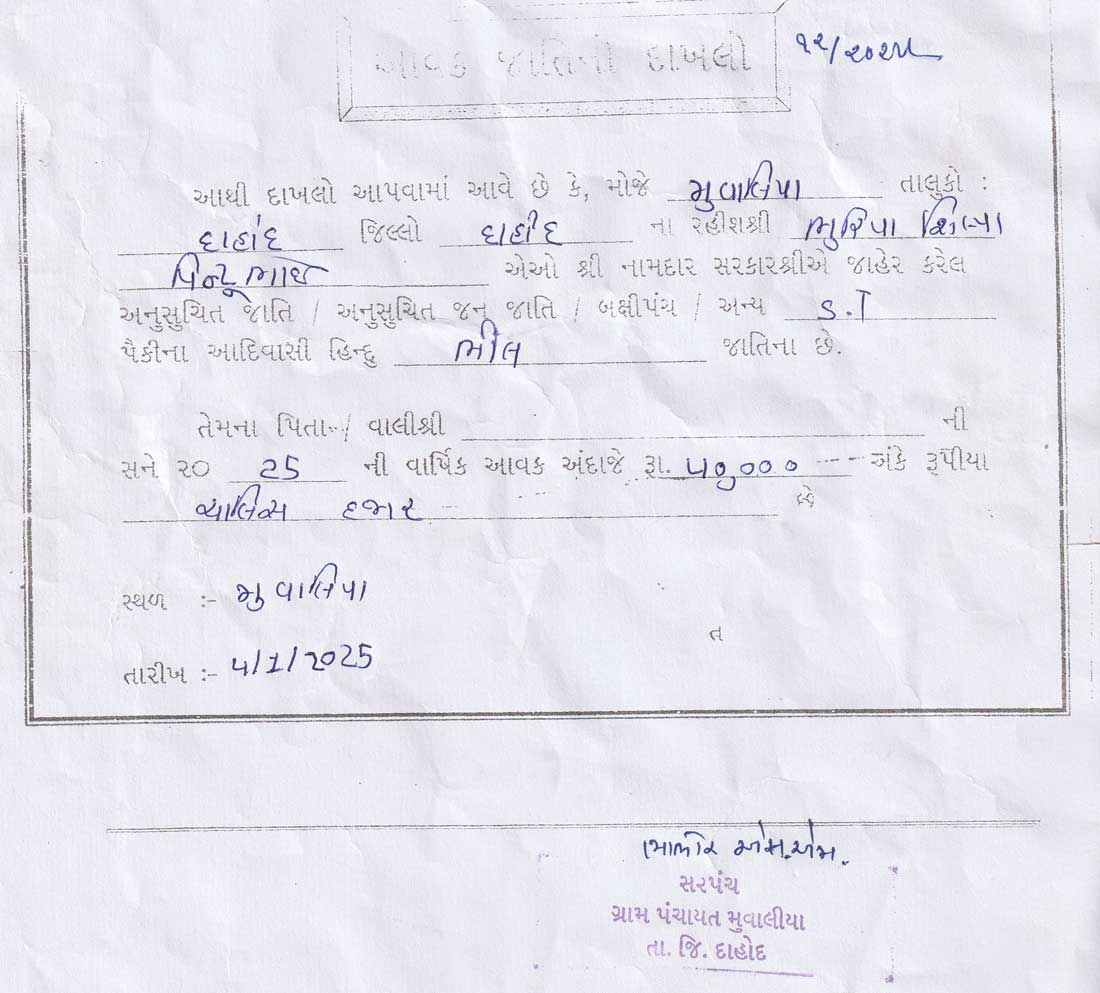 આવક જાતિનો દાખલો
૧૨/૨૦૨૫
આથી દાખલો આપવામાં આવે છે કે, મોજે મુવાલિયા તાલુકો :
દાહોદ જિલ્લો દાહોદ ના રહીશશ્રી ભુરિયા શિલ્પા
પિન્ટુભાઈ એઓ શ્રી નામદાર સરકારશ્રીએ જાહેર કરેલ
અનુસુચિત જાતિ / અનુસુચિત જન જાતિ / બક્ષીપંચ / અન્ય S.T
પૈકીના આદિવાસી હિન્દુ ભીલ જાતિના છે.
તેમના પિતા / વાલીશ્રી ની
સને ૨૦ 25 ની વાર્ષિક આવક અંદાજે રૂા. ૫૦,૦૦૦ અંકે રૂપીયા
ચાલિસ હજાર છે
સ્થળ :- મુવાલિયા
ત
તારીખ :- ૫/1/2025
એસ.એમ.
સરપંચ
ગ્રામ પંચાયત મુવાલીયા
તા. જિ. દાહોદ